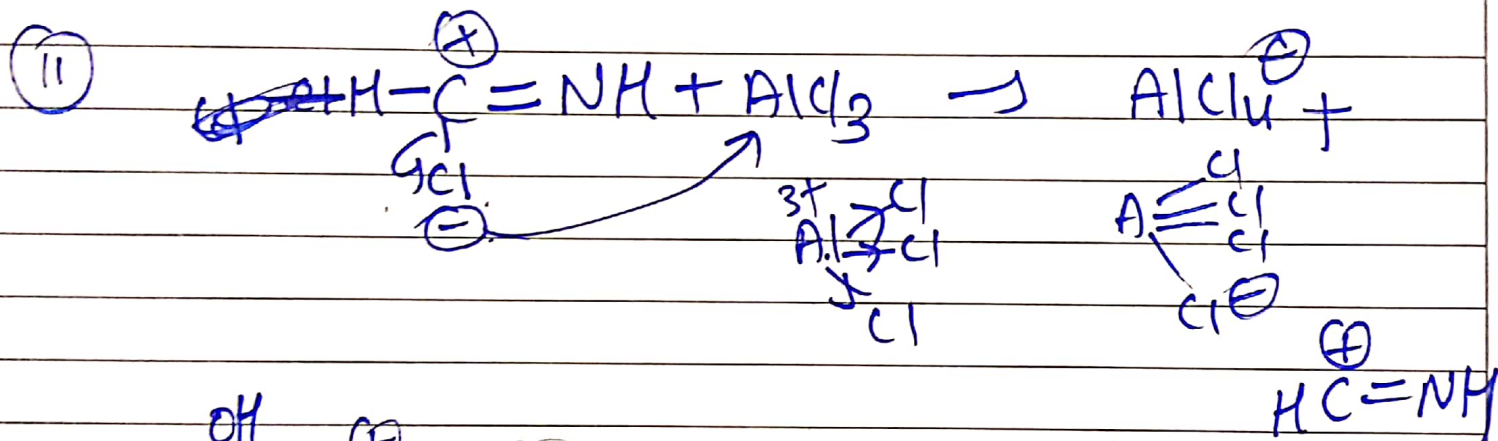 11
⊕
H-C=NH + AlCl3 → AlCl4⊖ +
Cl
⊖
3+
Al Cl
Cl
Cl
A Cl
Cl
Cl
Cl⊖
⊕
HC=NH
OH ⊕